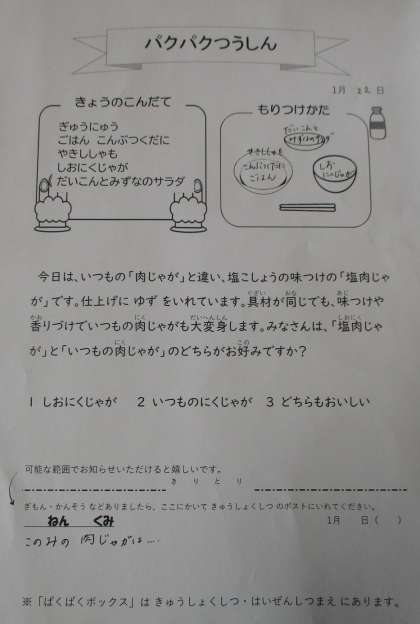 パクパクつうしん
1月 22 日
きょうのこんだて
ぎゅうにゅう
ごはん こんぶつくだに
やきししゃも
しおにくじゃが
だいこんとみずなのサラダ
もりつけかた
だいこんと
みずなのサラダ
やきししゃも
こんぶつくだに
ごはん
しお
にくじゃが
今日は、いつもの「肉じゃが」と違い、塩こしょうの味つけの「塩肉じゃ
が」です。仕上げに ゆず をいれています。具材が同じでも、味つけや
香りづけでいつもの肉じゃがも大変身します。みなさんは、「塩肉じゃ
が」と「いつもの肉じゃが」のどちらがお好みですか?
1 しおにくじゃが 2 いつものにくじゃが 3 どちらもおいしい
可能な範囲でお知らせいただけると嬉しいです。
きりとり
ぎもん・かんそう などありましたら、ここにかいて きゅうしょくしつ のポストにいれてください。
ねん くみ 1月 日( )
このみの 肉じゃがは…
※「ぱくぱくボックス」は きゅうしょくしつ・はいぜんしつまえ にあります。